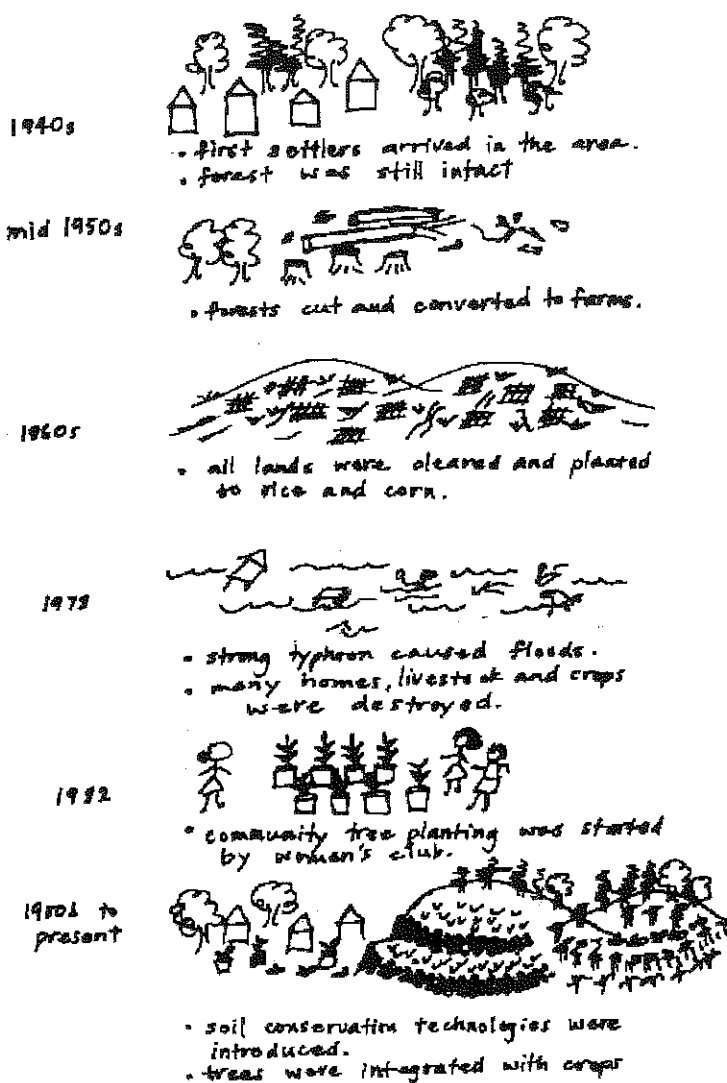 1940s
• first settlers arrived in the area.
• forest was still intact
mid 1950s
• forests cut and converted to farms.
1960s
• all lands were cleared and planted
to rice and corn.
1978
• strong typhoon caused floods.
• many homes, livestock and crops
were destroyed.
1982
• community tree planting was started
by women's club.
1980s to
present
• soil conservation technologies were
introduced.
• trees were integrated with crops